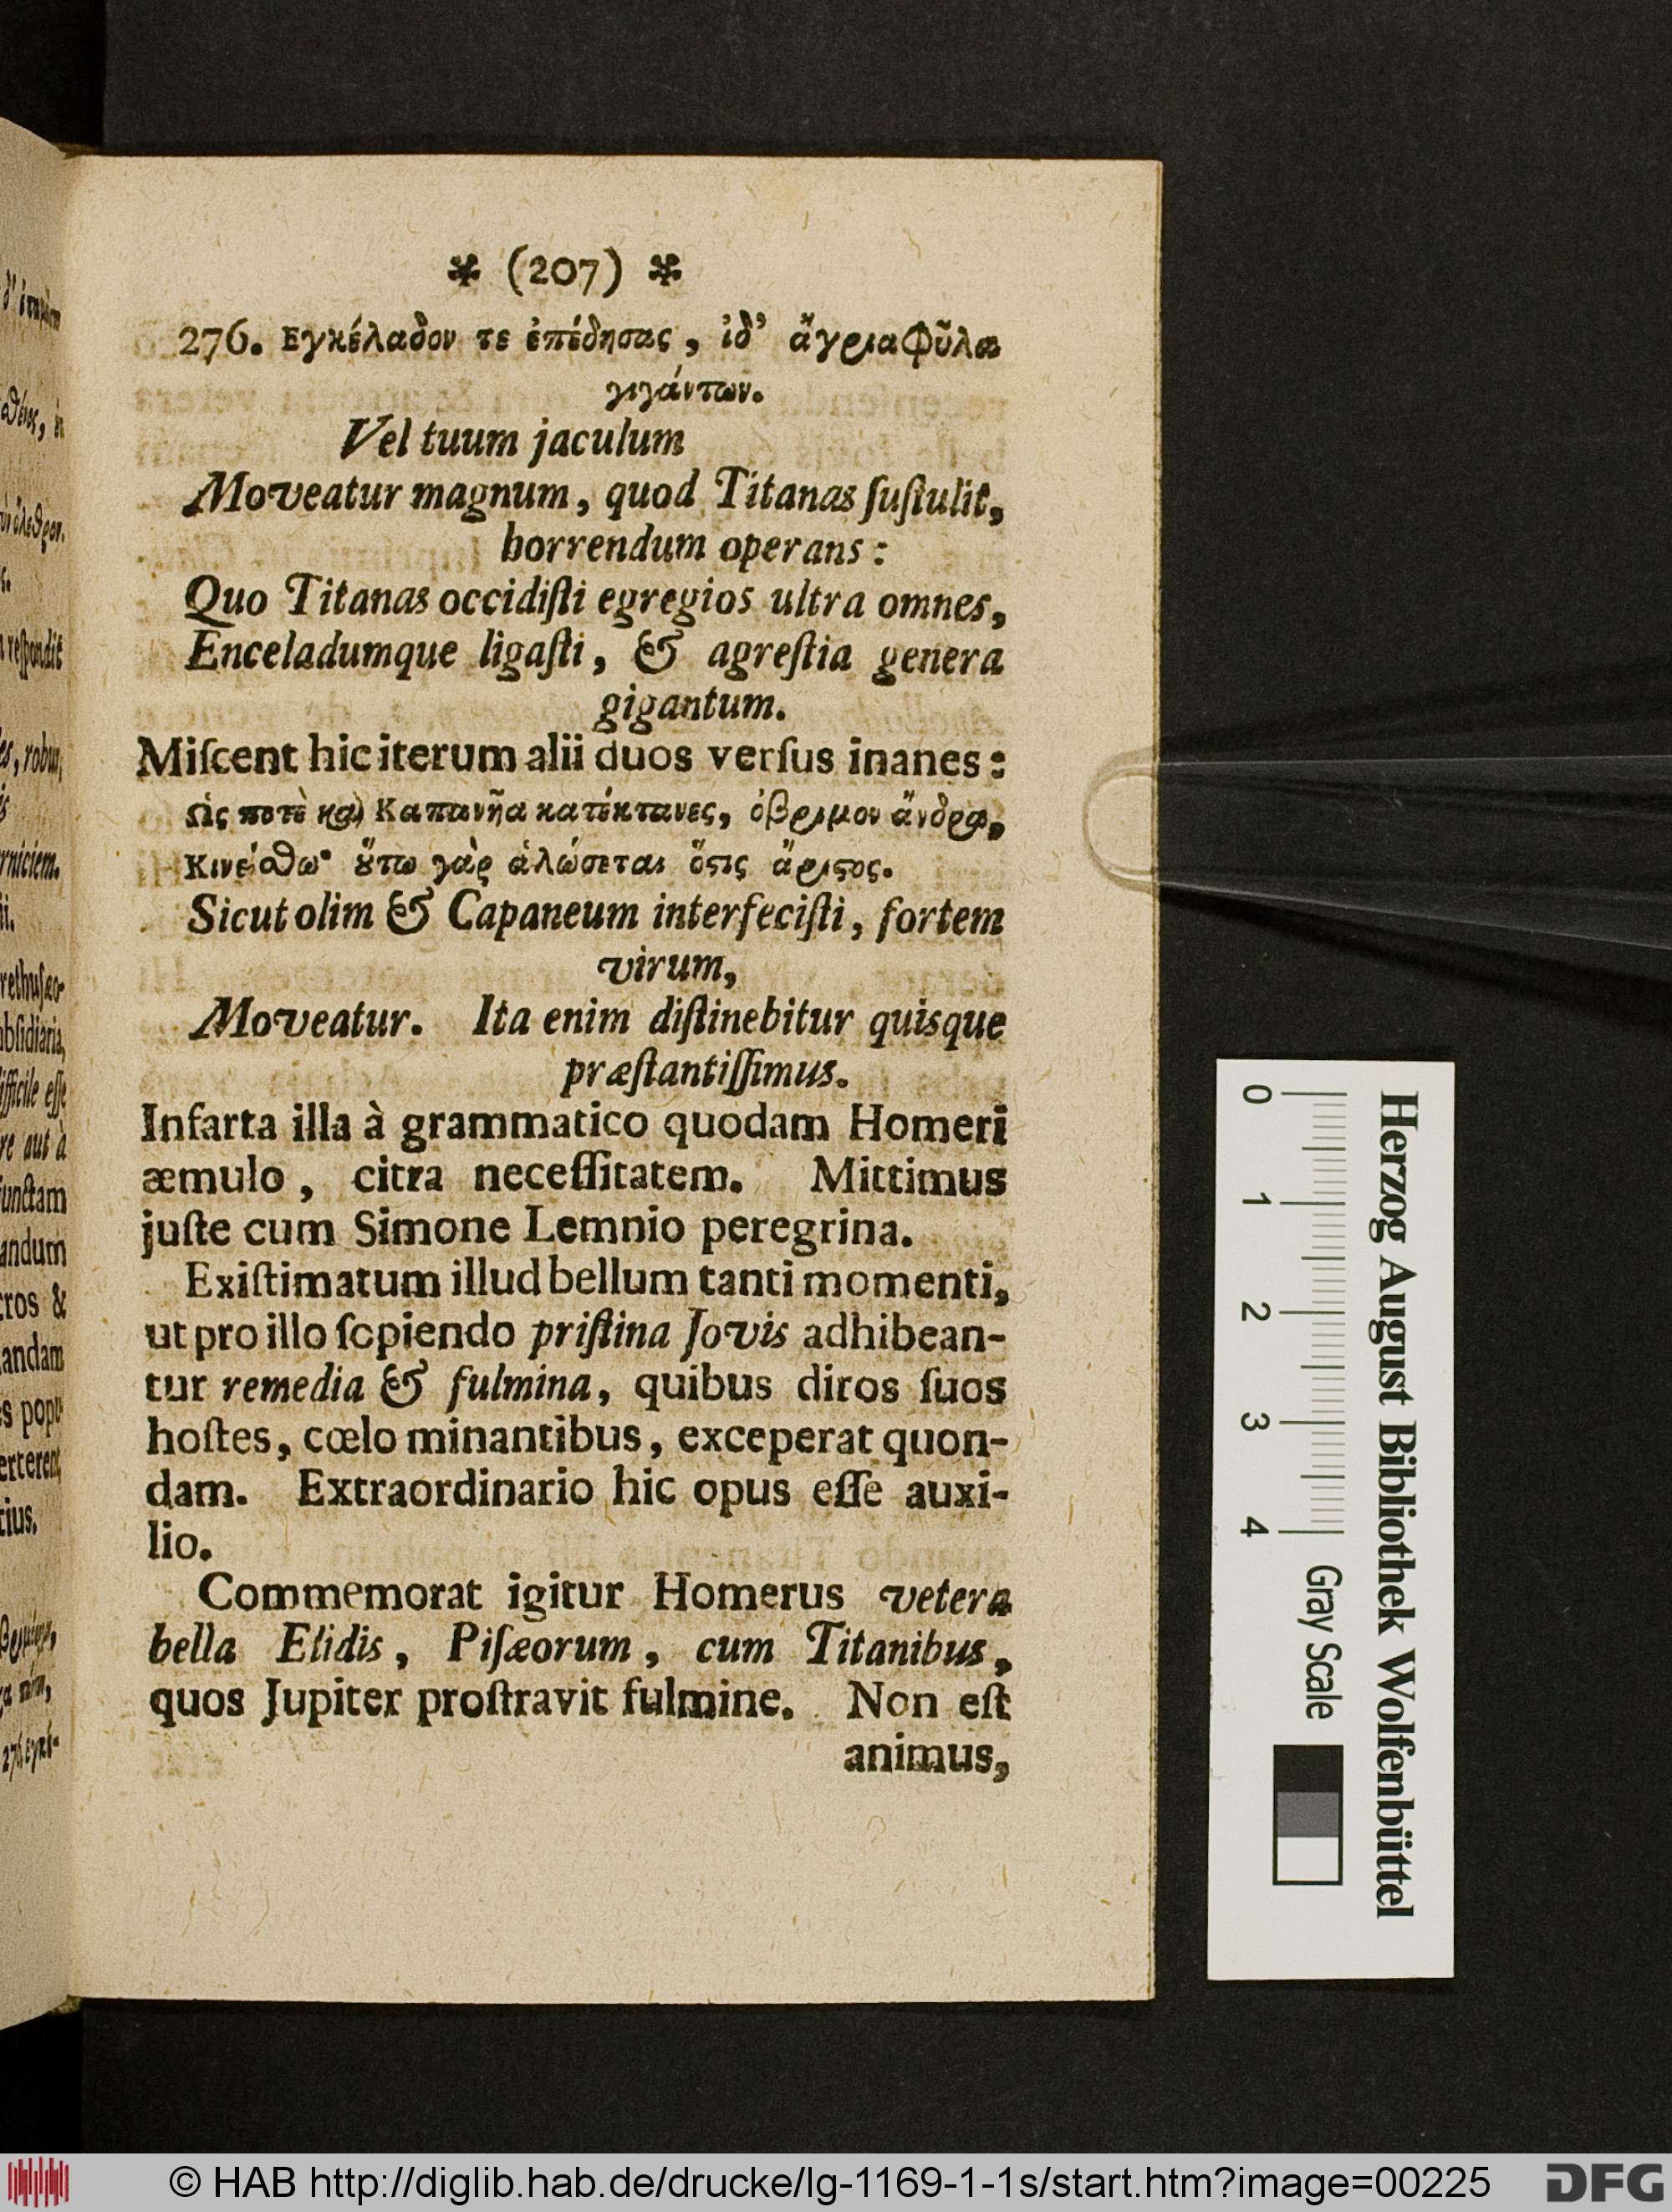 * (207) *
276. Εγκέλαδον τε ἐπέδησας, ἰδ' ἄγρια φῦλα
γιγάντων.
Vel tuum jaculum
Moveatur magnum, quod Titanas ſuſtulit,
horrendum operans:
Quo Titanas occidiſti egregios ultra omnes,
Enceladumque ligaſti, & agreſtia genera
gigantum.
Miſcent hic iterum alii duos verſus inanes:
Ὡς ποτὲ καὶ Καπανῆα κατέκτανες, ὀβριμον ἄνδρα,
Κινείσθω· ὅτω γὰρ ἁλώσεται ὅστις ἄριστος.
Sicut olim & Capaneum interfeciſti, fortem
virum,
Moveatur. Ita enim diſtinebitur quisque
præſtantiſſimus.
Infarta illa à grammatico quodam Homeri
æmulo, citra neceſſitatem. Mittimus
juſte cum Simone Lemnio peregrina.
Exiſtimatum illud bellum tanti momenti,
ut pro illo ſopiendo priſtina Jovis adhibean-
tur remedia & fulmina, quibus diros ſuos
hoſtes, cœlo minantibus, exceperat quon-
dam. Extraordinario hic opus eſſe auxi-
lio.
Commemorat igitur Homerus vetera
bella Elidis, Piſæorum, cum Titanibus,
quos Jupiter proſtravit fulmine. Non eſt
animus,
0 1 2 3 4 Gray Scale
Herzog August Bibliothek Wolfenbüttel
© HAB http://diglib.hab.de/drucke/lg-1169-1-1s/start.htm?image=00225
DFG